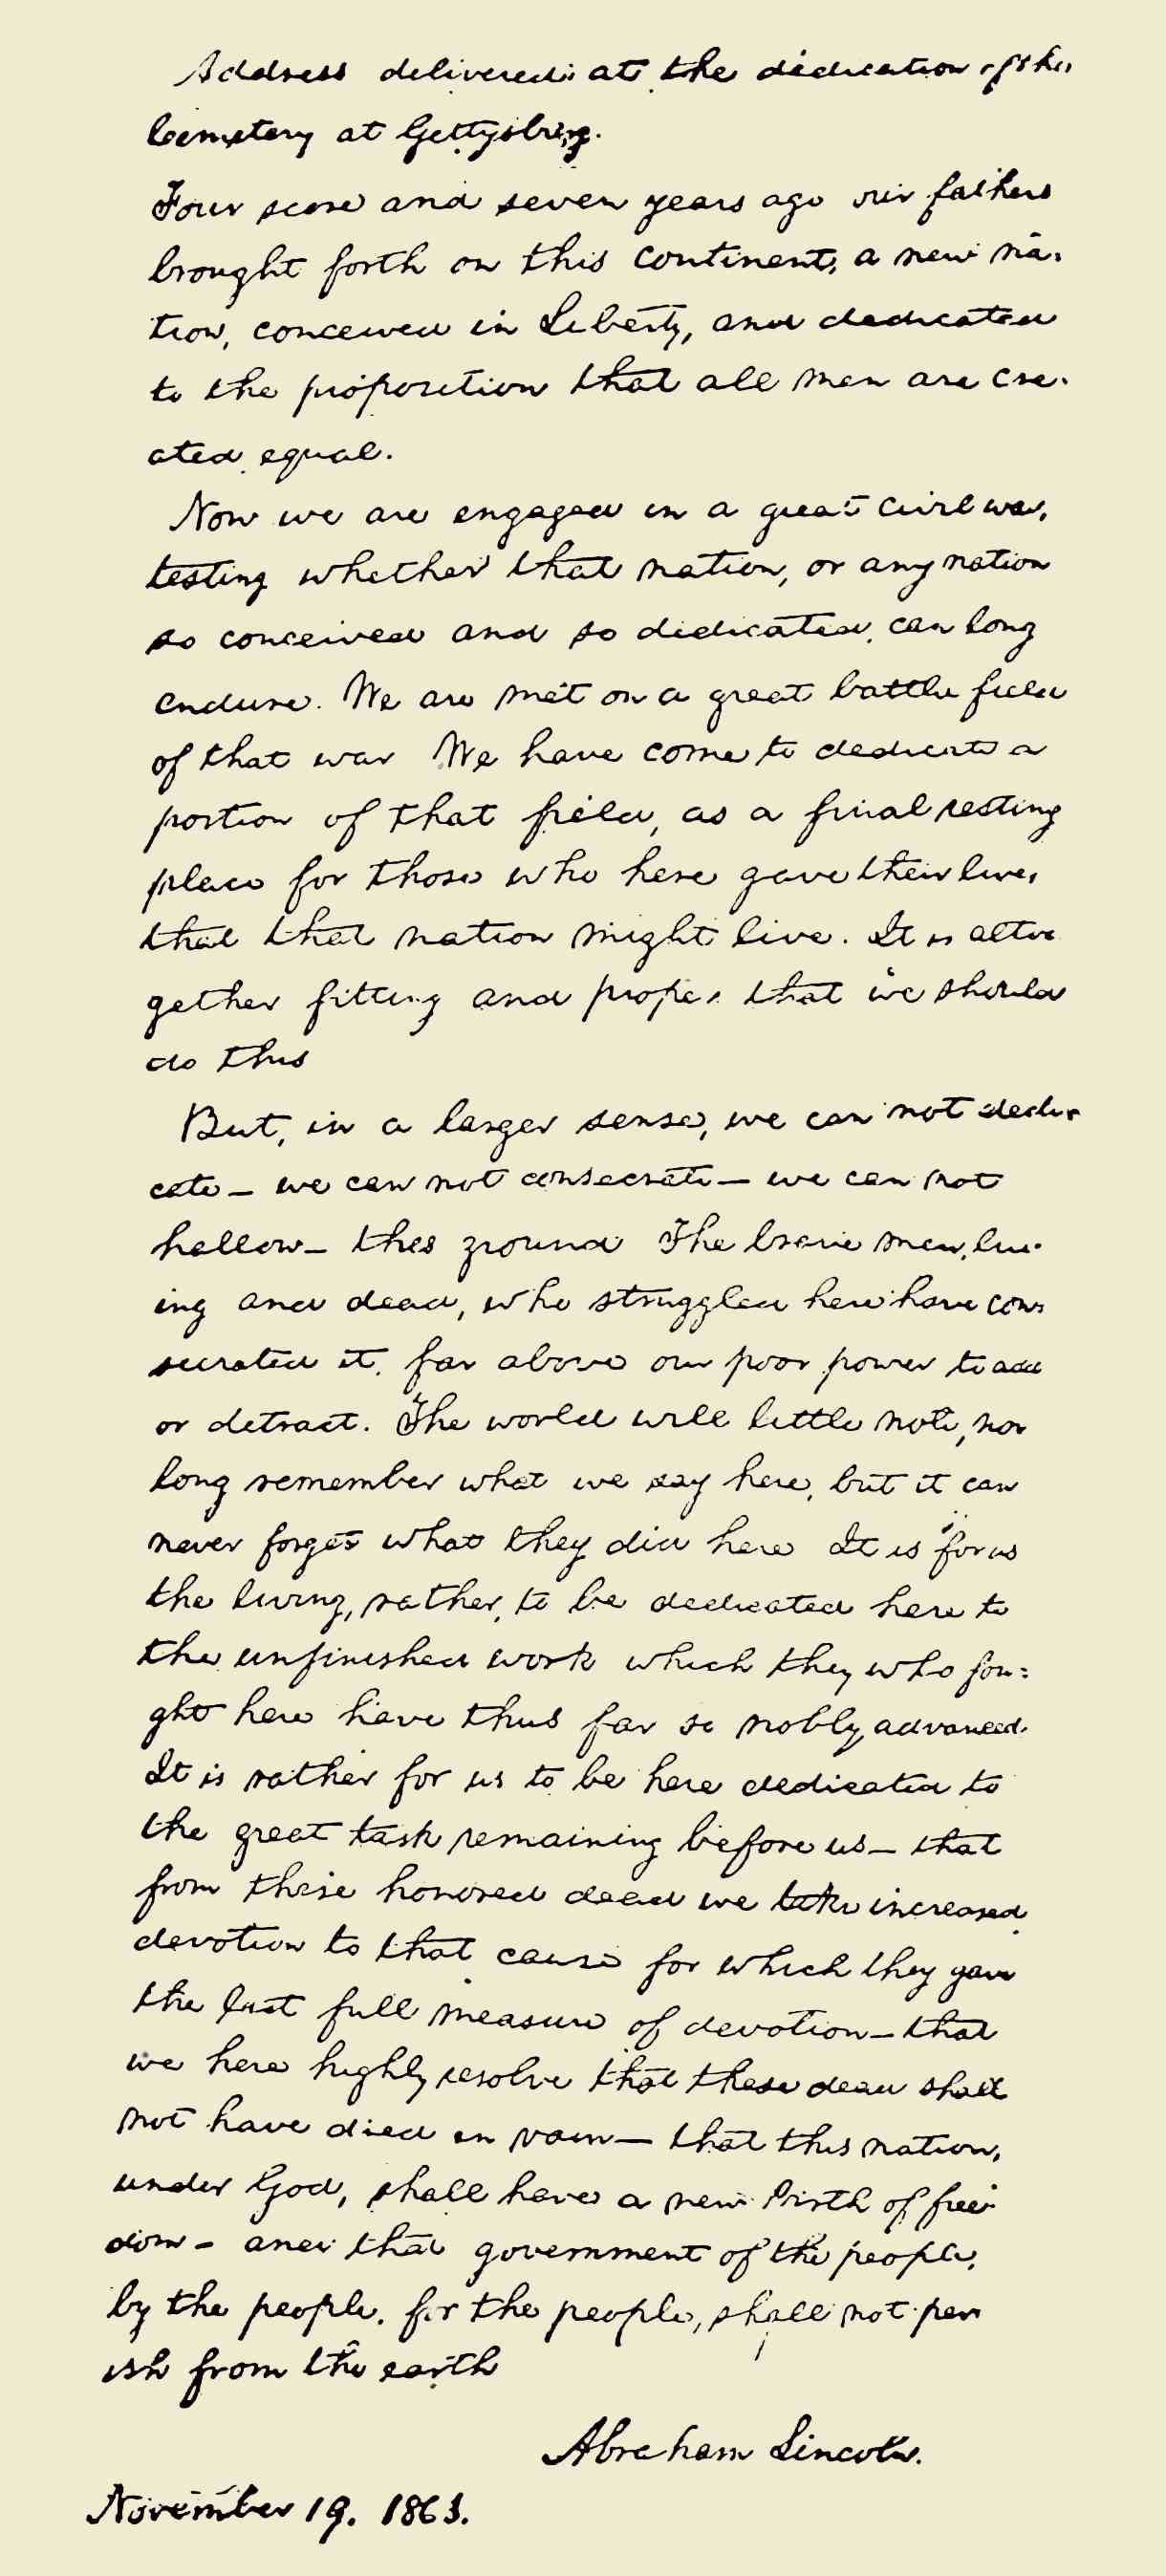 Address delivered at the dedication of the
Cemetery at Gettysburg.
Four score and seven years ago our fathers
brought forth on this continent, a new na-
tion, conceived in Liberty, and dedicated
to the proposition that all men are cre-
ated equal.
Now we are engaged in a great civil war,
testing whether that nation, or any nation
so conceived and so dedicated, can long
endure. We are met on a great battle field
of that war We have come to dedicate a
portion of that field, as a final resting
place for those who here gave their lives
that that nation might live. It is alto
gether fitting and proper that we should
do this
But, in a larger sense, we can not dedi-
cate— we can not consecrate— we can not
hallow— this ground The brave men, liv-
ing and dead, who struggled here have con
secrated it, far above our poor power to add
or detract. The world will little note, nor
long remember what we say here, but it can
never forget what they did here It is for us
the living, rather, to be dedicated here to
the unfinished work which they who fou-
ght here have thus far so nobly advanced.
It is rather for us to be here dedicated to
the great task remaining before us— that
from these honored dead we take increased
devotion to that cause for which they gave
the last full measure of devotion— that
we here highly resolve that these dead shall
not have died in vain— that this nation,
under God, shall have a new birth of free-
dom— and that government of the people,
by the people, for the people, shall not per
ish from the earth
Abraham Lincoln.
November 19. 1863.